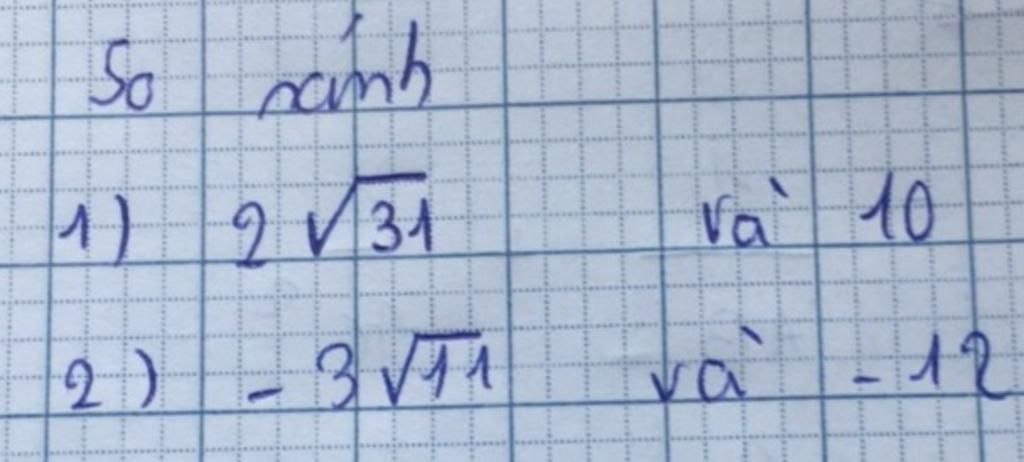 So sánh
1) 2√31 và 10
2) - 3√11 và - 12